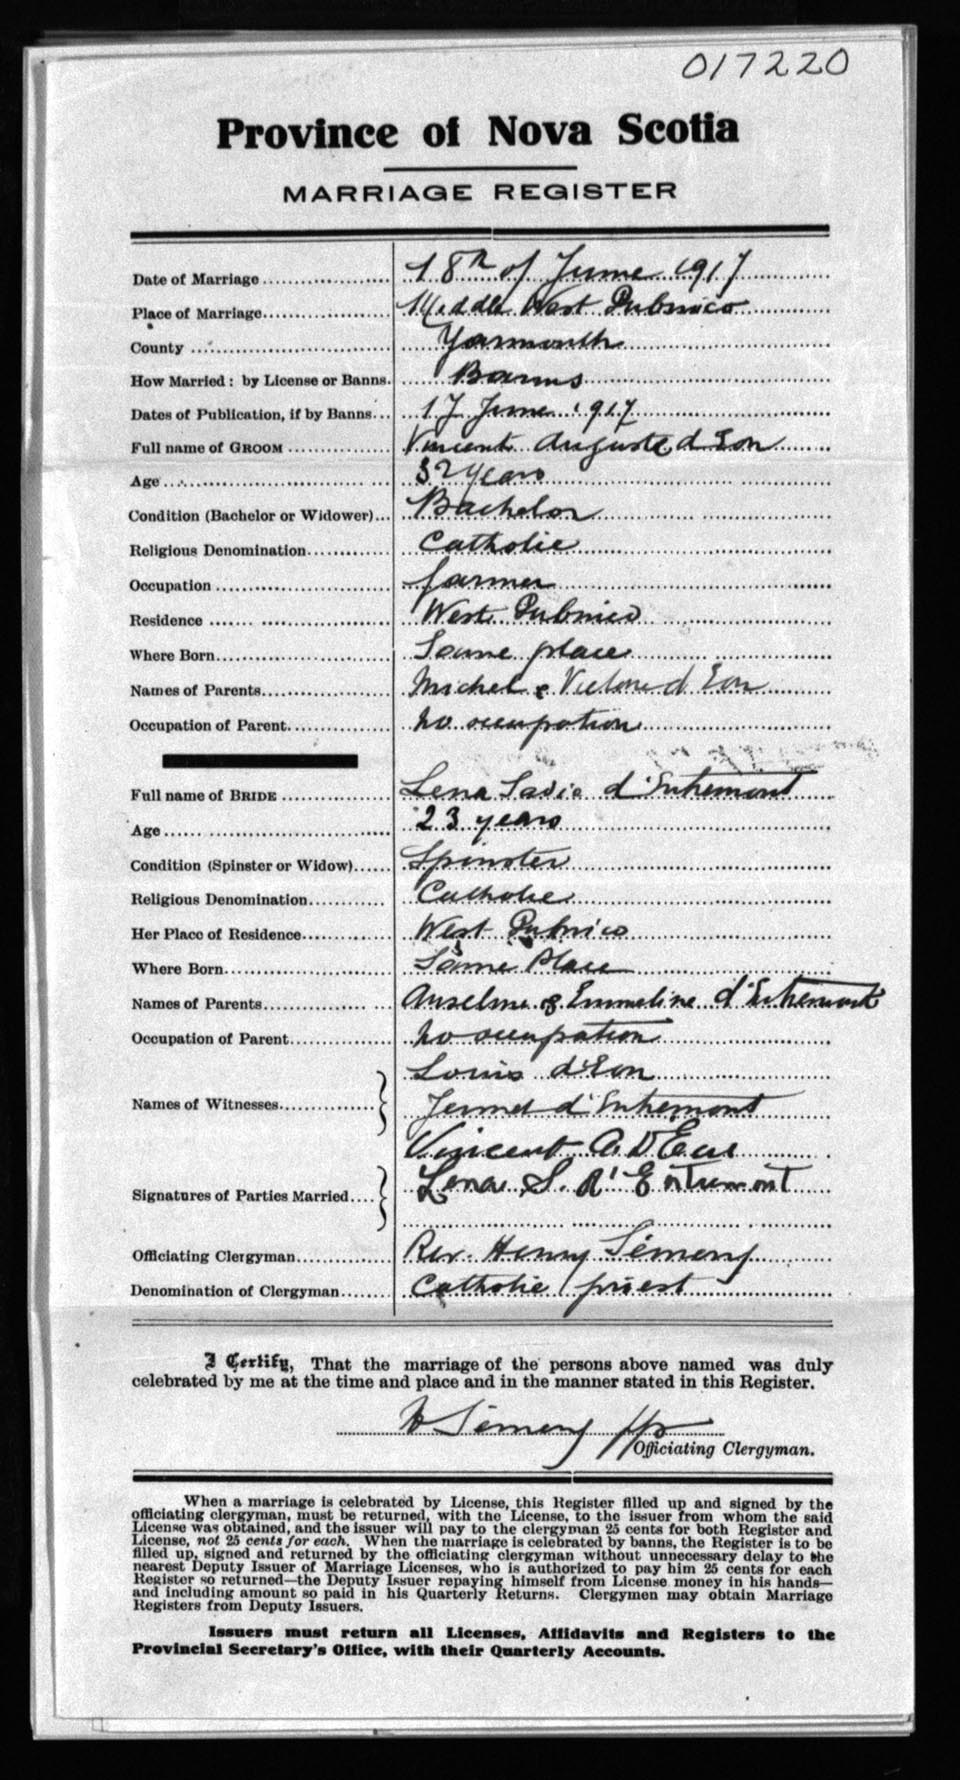 017220
Province of Nova Scotia
MARRIAGE REGISTER
Date of Marriage 18th of June 1917
Place of Marriage Middle West Pubnico
County Yarmouth
How Married: by License or Banns. Banns
Dates of Publication, if by Banns 17 June 1917
Full name of GROOM Vincent Auguste d'Eon
Age 32 years
Condition (Bachelor or Widower) Bachelor
Religious Denomination Catholic
Occupation farmer
Residence West Pubnico
Where Born Same place
Names of Parents Michel & d'Eon
Occupation of Parent no occupation
Full name of BRIDE Lena Sadie d'Entremont
Age 23 years
Condition (Spinster or Widow) Spinster
Religious Denomination Catholic
Her Place of Residence West Pubnico
Where Born Same Place
Names of Parents Anselme & Emmeline d'Entremont
Occupation of Parent no occupation
Louis d'Eon
Names of Witnesses d'Entremont
Vincent A D'Eon
Signatures of Parties Married Lena S. d'Entremont
Officiating Clergyman Rev. Henry
Denomination of Clergyman Catholic priest
I Certify, That the marriage of the persons above named was duly
celebrated by me at the time and place and in the manner stated in this Register.
H
Officiating Clergyman.
When a marriage is celebrated by License, this Register filled up and signed by the
officiating clergyman, must be returned, with the License, to the issuer from whom the said
License was obtained, and the issuer will pay to the clergyman 25 cents for both Register and
License, not 25 cents for each. When the marriage is celebrated by banns, the Register is to be
filled up, signed and returned by the officiating clergyman without unnecessary delay to the
nearest Deputy Issuer of Marriage Licenses, who is authorized to pay him 25 cents for each
Register so returned—the Deputy Issuer repaying himself from License money in his hands—
and including amount so paid in his Quarterly Returns. Clergymen may obtain Marriage
Registers from Deputy Issuers.
Issuers must return all Licenses, Affidavits and Registers to the
Provincial Secretary's Office, with their Quarterly Accounts.